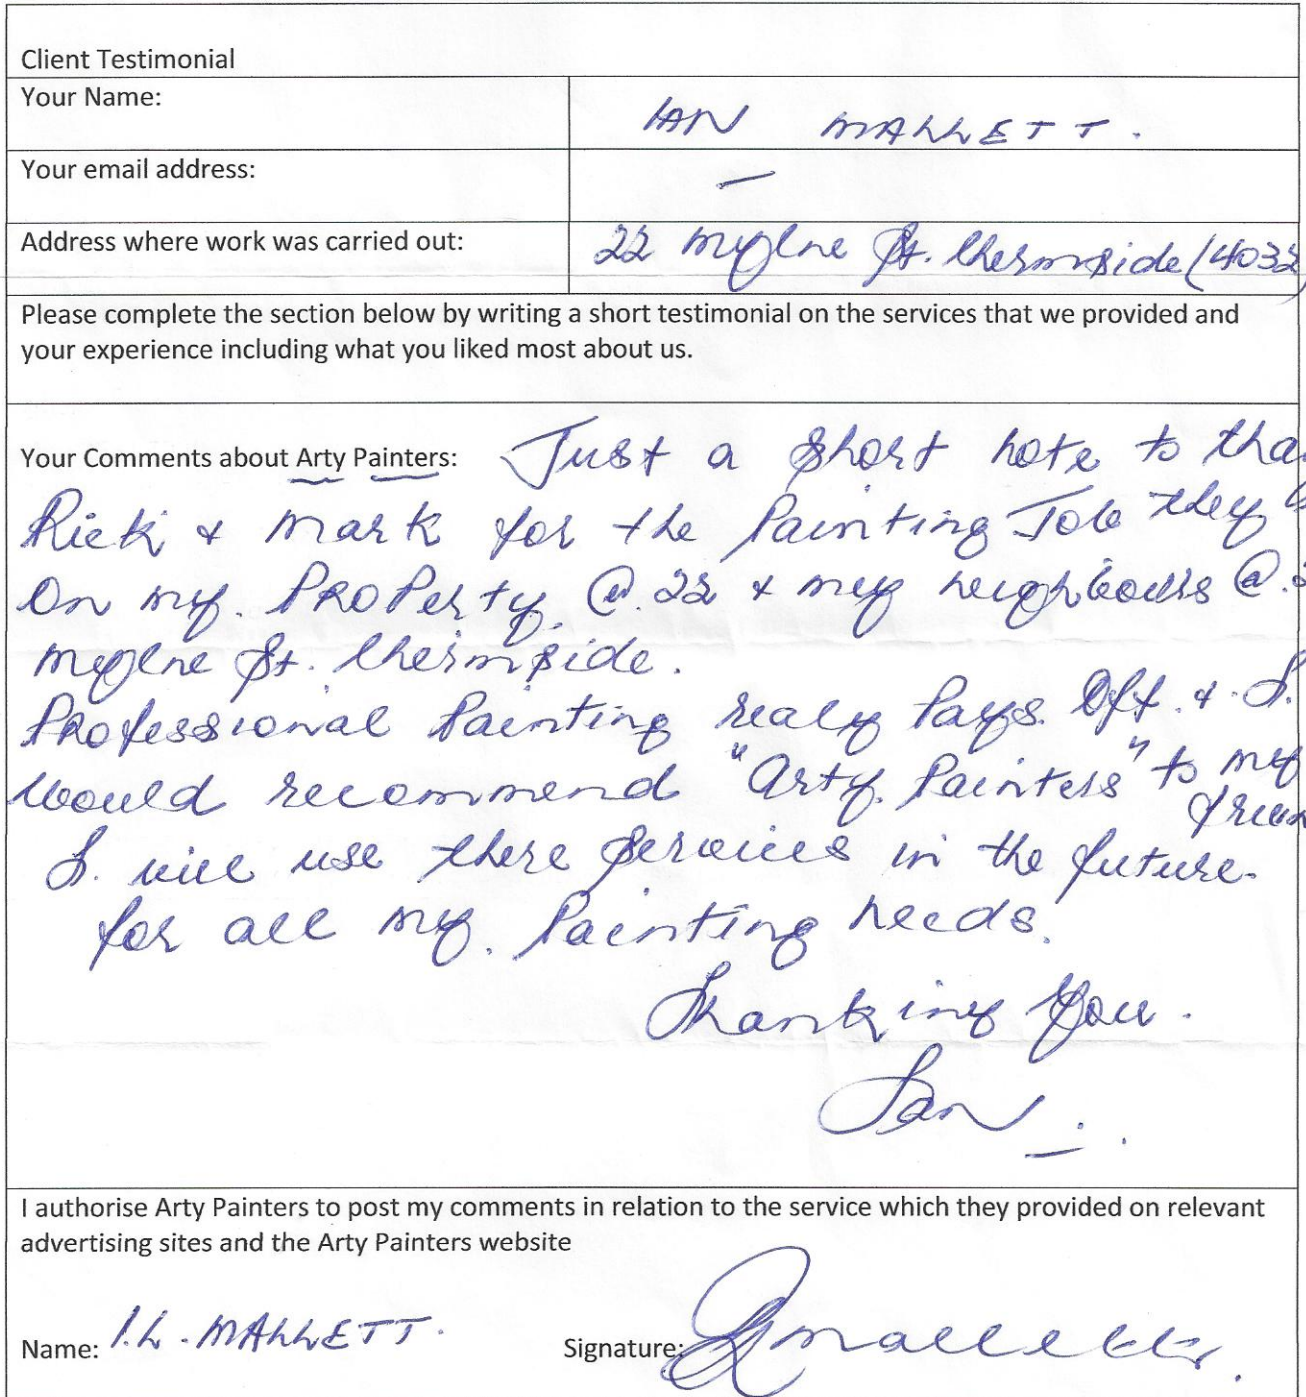 Client Testimonial
Your Name: IAN MALLETT.
Your email address: —
Address where work was carried out: 22 mylne St. Chermside (4032)
Please complete the section below by writing a short testimonial on the services that we provided and
your experience including what you liked most about us.
Your Comments about Arty Painters: Just a short note to tha
Rick & Mark for the Painting Job they
On my. PROPerty. @. 22 & my neighbours @.
mylne St. Chermside.
PROfessional Painting realy Pays. Off. & I.
Would recommend "Arty. Painters" to my
frien
I. will use there services in the future.
for all my. Painting needs.
Thanking You.
Ian
I authorise Arty Painters to post my comments in relation to the service which they provided on relevant
advertising sites and the Arty Painters website
Name: I.L. MALLETT. Signature: Mallett.